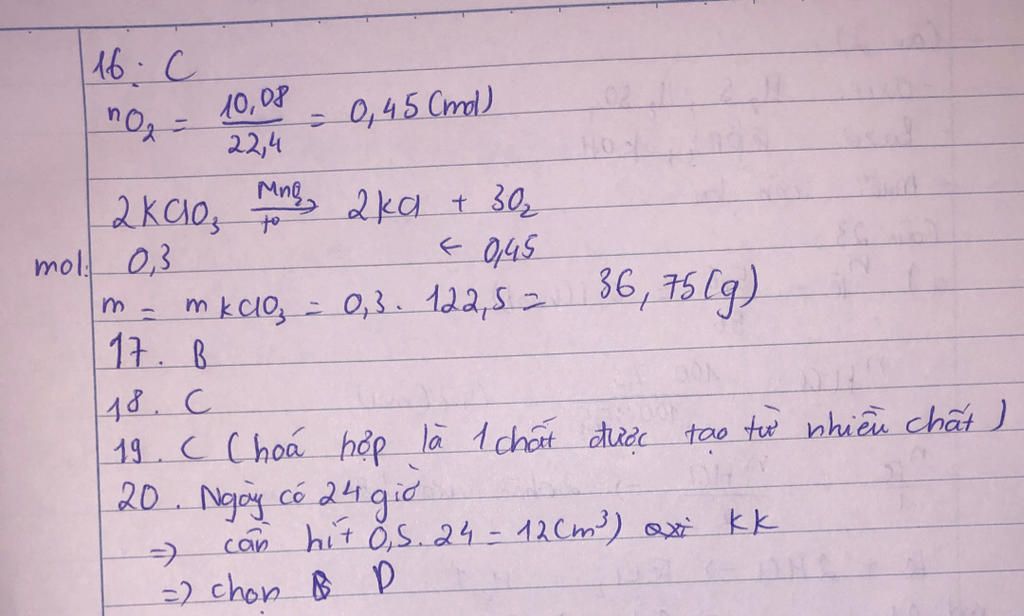 16. C
nO₂ = 10,08/22,4 = 0,45 (mol)
2KClO₃ MnO₂/t° → 2KCl + 3O₂
mol: 0,3 ← 0,45
m = mKClO₃ = 0,3 . 122,5 = 36,75 (g)
17. B
18. C
19. C (hoá hợp là 1 chất được tạo từ nhiều chất)
20. Ngày có 24 giờ
=> cần hít 0,5.24 = 12 (m³) KK
=> chọn D